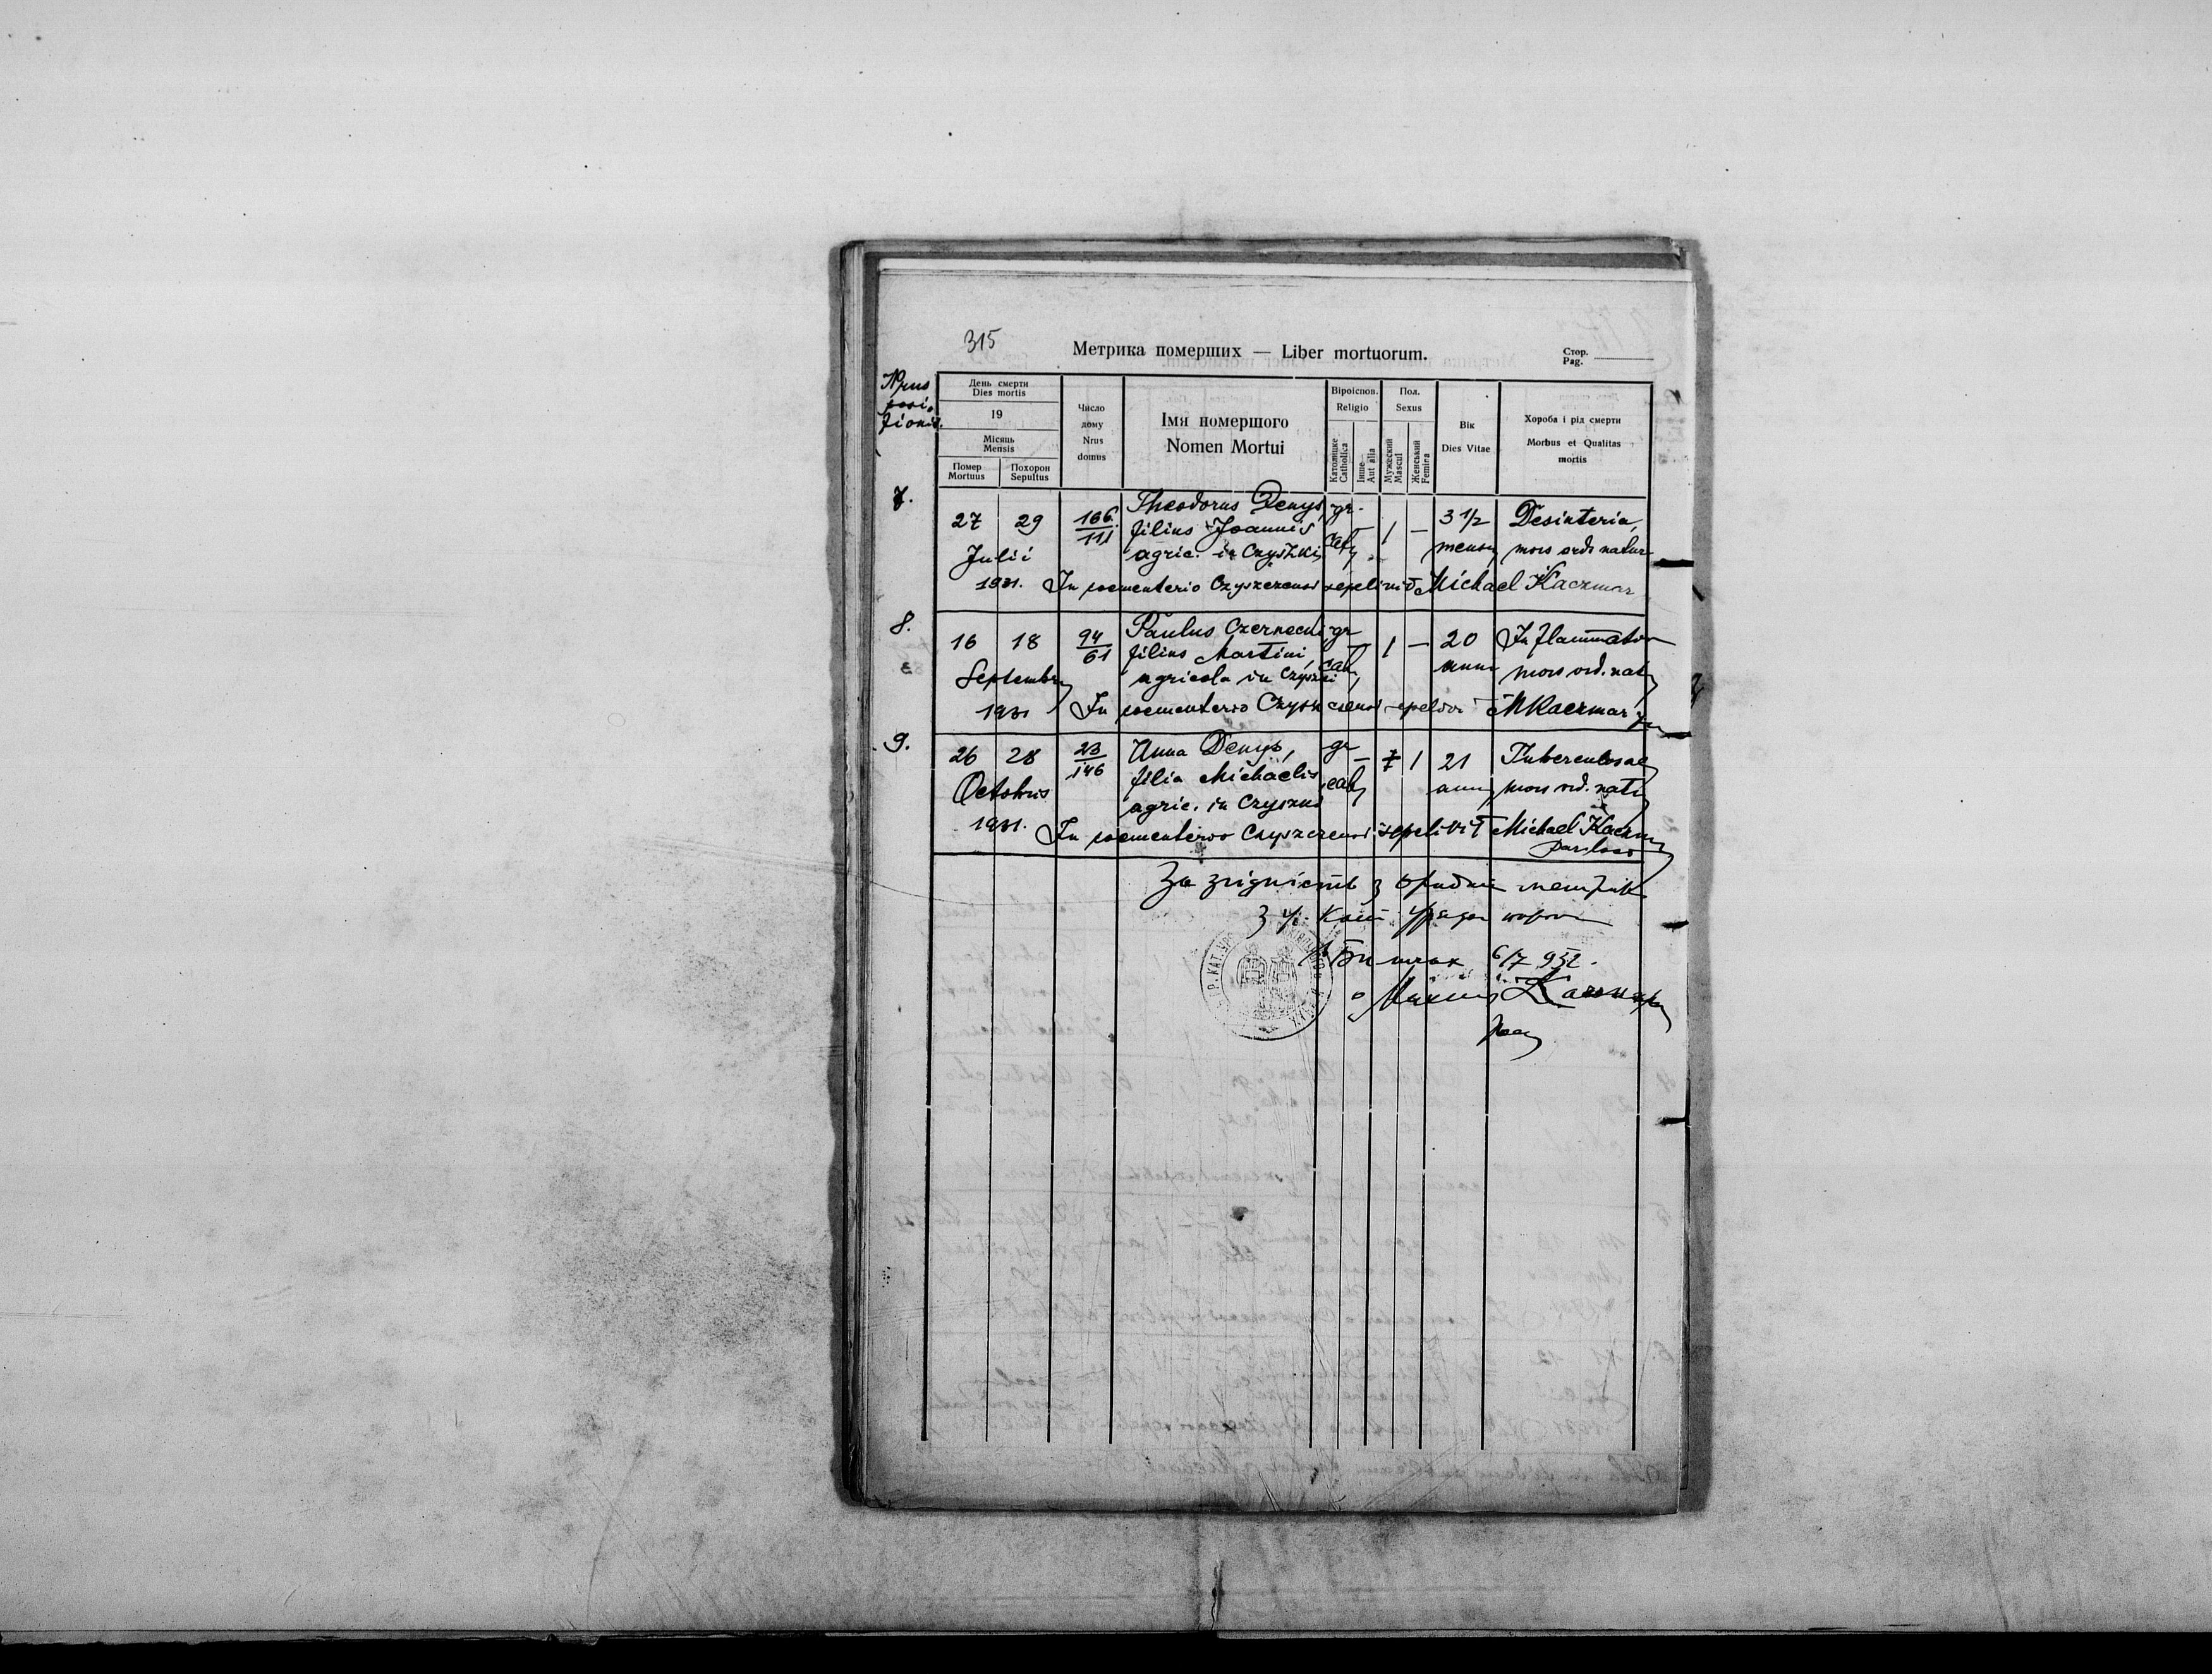 315
Метрика померших — Liber mortuorum.
Стор.
Pag.
Nrus
posi-
tionis.
День смерти
Dies mortis
19
Місяць
Mensis
Помер
Mortuus
Похорон
Sepultus
Число
дому
Nrus
domus
Імя помершого
Nomen Mortui
Віроіспов.
Religio
Католицке
Catholica
Інше
Aut alia
Пол.
Sexus
Мужеский
Mascul
Женський
Femina
Вік
Dies Vitae
Хороба і рід смерти
Morbus et Qualitas
mortis
7. 27 29 166/111 Theodorus Denys, gr. — 1 — 3 1/2 Desinteria,
filius Joannis cat
Julii agric. in Czyszki mens mors ord. natur
1931. In coementerio Czyszcenosi sepelivit Michael Kaczmar
8. 16 18 94/61 Paulus Czernecki, gr — 1 — 20 Inflammatio
filius Martini, cat
Septembr agricola in Czyszki anni mors ord. nat
1931 In coementerio sepelivi MKaczmar
9. 26 28 23/146 Anna Denys, gr — 1 21 Tuberculosae
filia Michaelis cat
Octobris agric. in anni mors ord. nat
1931. In coementerio sepelivit Michael Kaczm
parochus
За згідність з
з гр. кат
6/7 932.